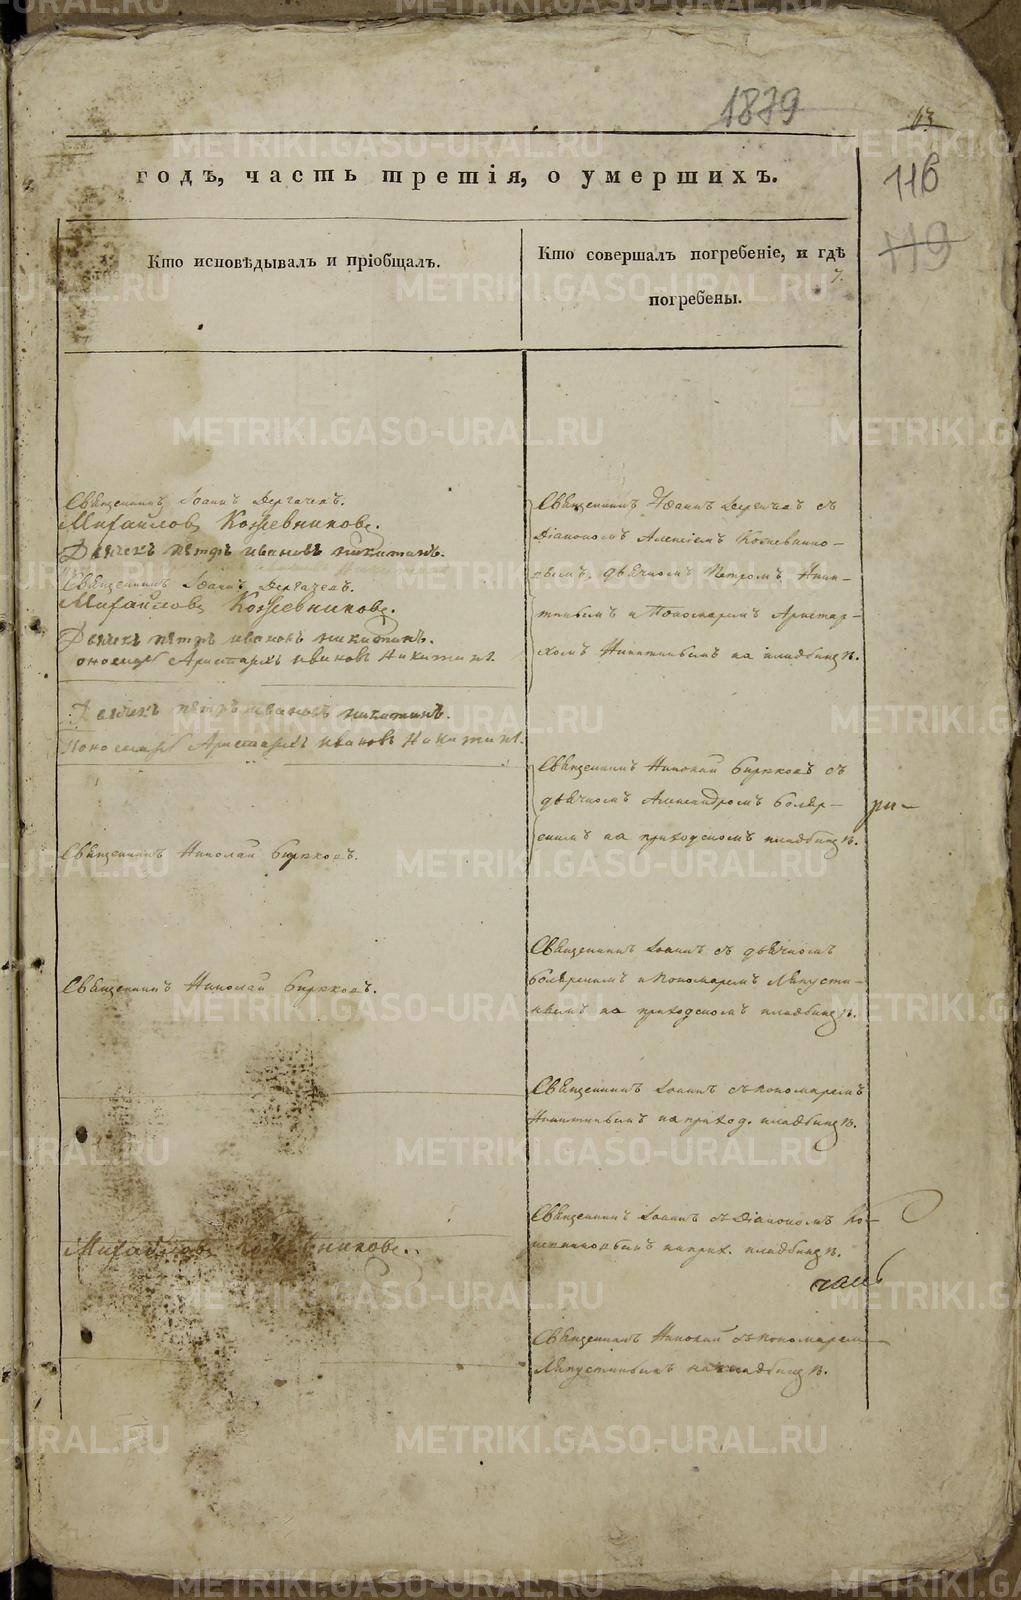 1879
63
116
119
годъ, часть третія, о умершихъ.
Кто исповѣдывалъ и пріобщалъ.
Кто совершалъ погребеніе, и гдѣ
7.
погребены.
Священникъ Іоаннъ Дергачевъ.
Михайловъ Кожевниковъ.
Дьячекъ петръ ивановъ никитинъ.
Священникъ Іоаннъ Дергачевъ.
Михайловъ Кожевниковъ.
Дьячекъ петръ ивановъ никитинъ.
Аристархъ ивановъ Никитинъ.
Дьячекъ петръ ивановъ никитинъ.
Пономарь Аристархъ ивановъ Никитинъ.
Священникъ Николай Бирюковъ.
Священникъ Николай Бирюковъ.
Михайловъ Кожевниковъ.
Священникъ Іоаннъ Дергачевъ съ
Діакономъ Алексіемъ Кожевнико-
вымъ, дьячкомъ Петромъ Ники-
тинымъ и Пономаремъ Аристар-
хомъ Никитинымъ на кладбищѣ.
Священникъ Николай Бирюковъ съ
дьячкомъ Александромъ Бояр-
скимъ на приходскомъ кладбищѣ.
ри-
Священникъ Іоаннъ съ дьячкомъ
Боярскимъ и Пономаремъ Ляпусти-
нымъ на приходскомъ кладбищѣ.
Священникъ Іоаннъ съ пономаремъ
Никитинымъ на приход. кладбищѣ.
Священникъ Іоаннъ съ Діакономъ Ко-
жевниковымъ на прих. кладбищѣ.
Священникъ Николай съ пономаремъ
Ляпустинымъ на кладбищѣ.
METRIKI.GASO-URAL.RU